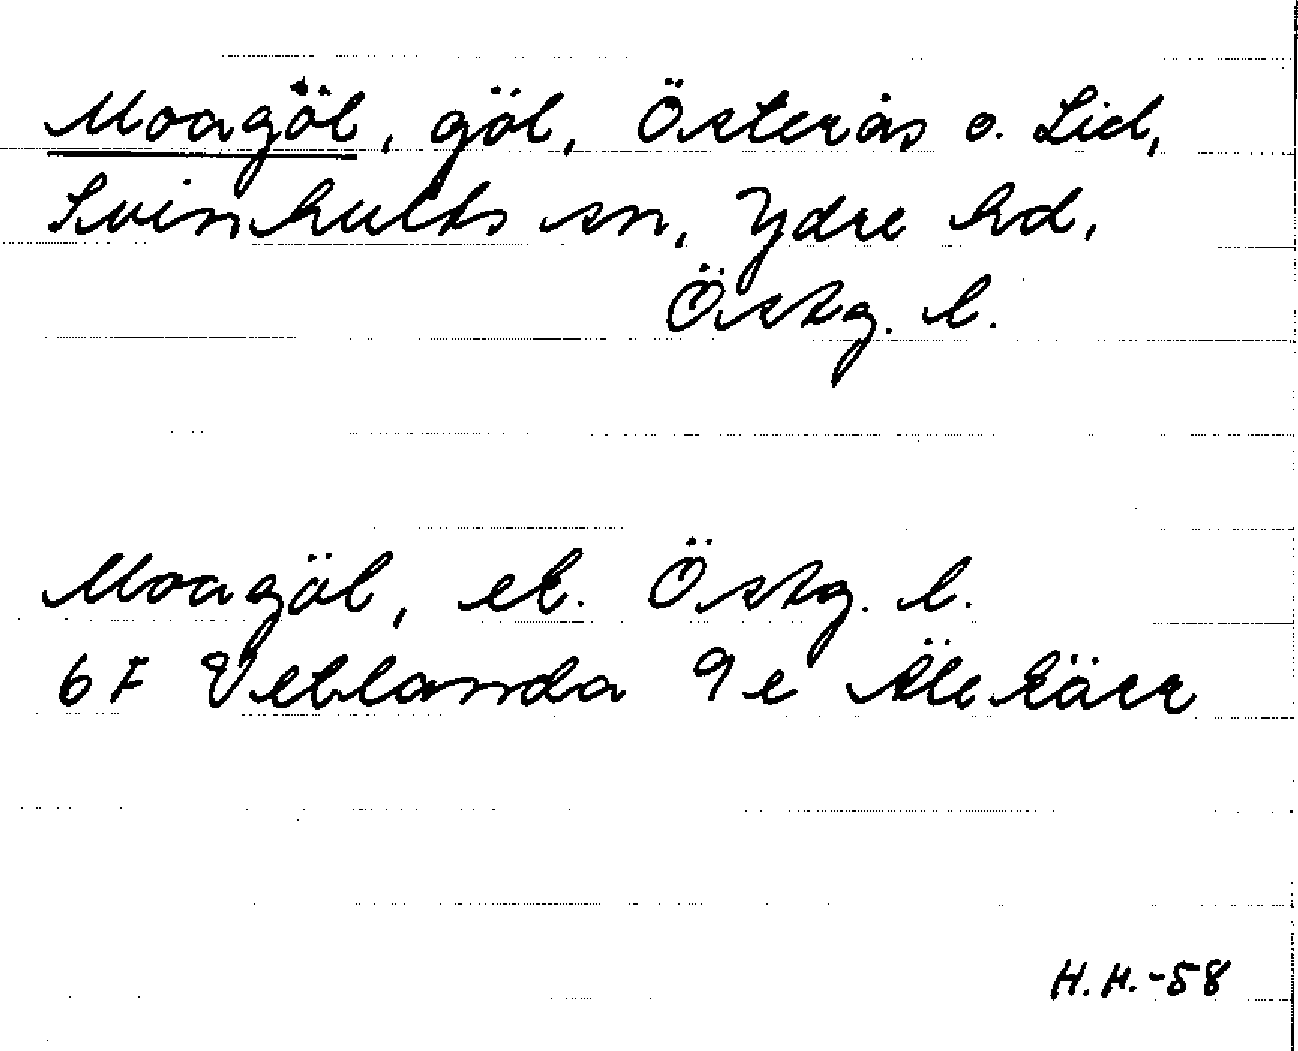 Moagöl, göl, Österås o. Lid,
Svinhults sn, Ydre hd,
Östg. l.
Moagöl, ek. Östg. l.
6 F Vetlanda 9 e Älekärr
H.H.-58